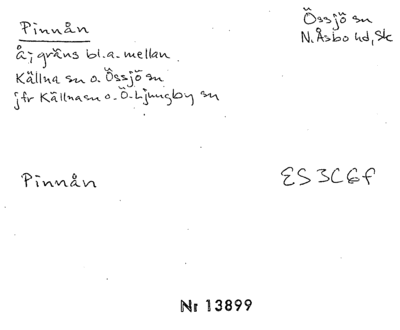 Pinnån
Össjö sn
N. Åsbo hd, Sk
å; gräns bl.a. mellan
Källna sn o. Össjö sn
jfr Källna sn o. Ö. Ljungby sn
Pinnån
ES 3C6f
Nr 13899